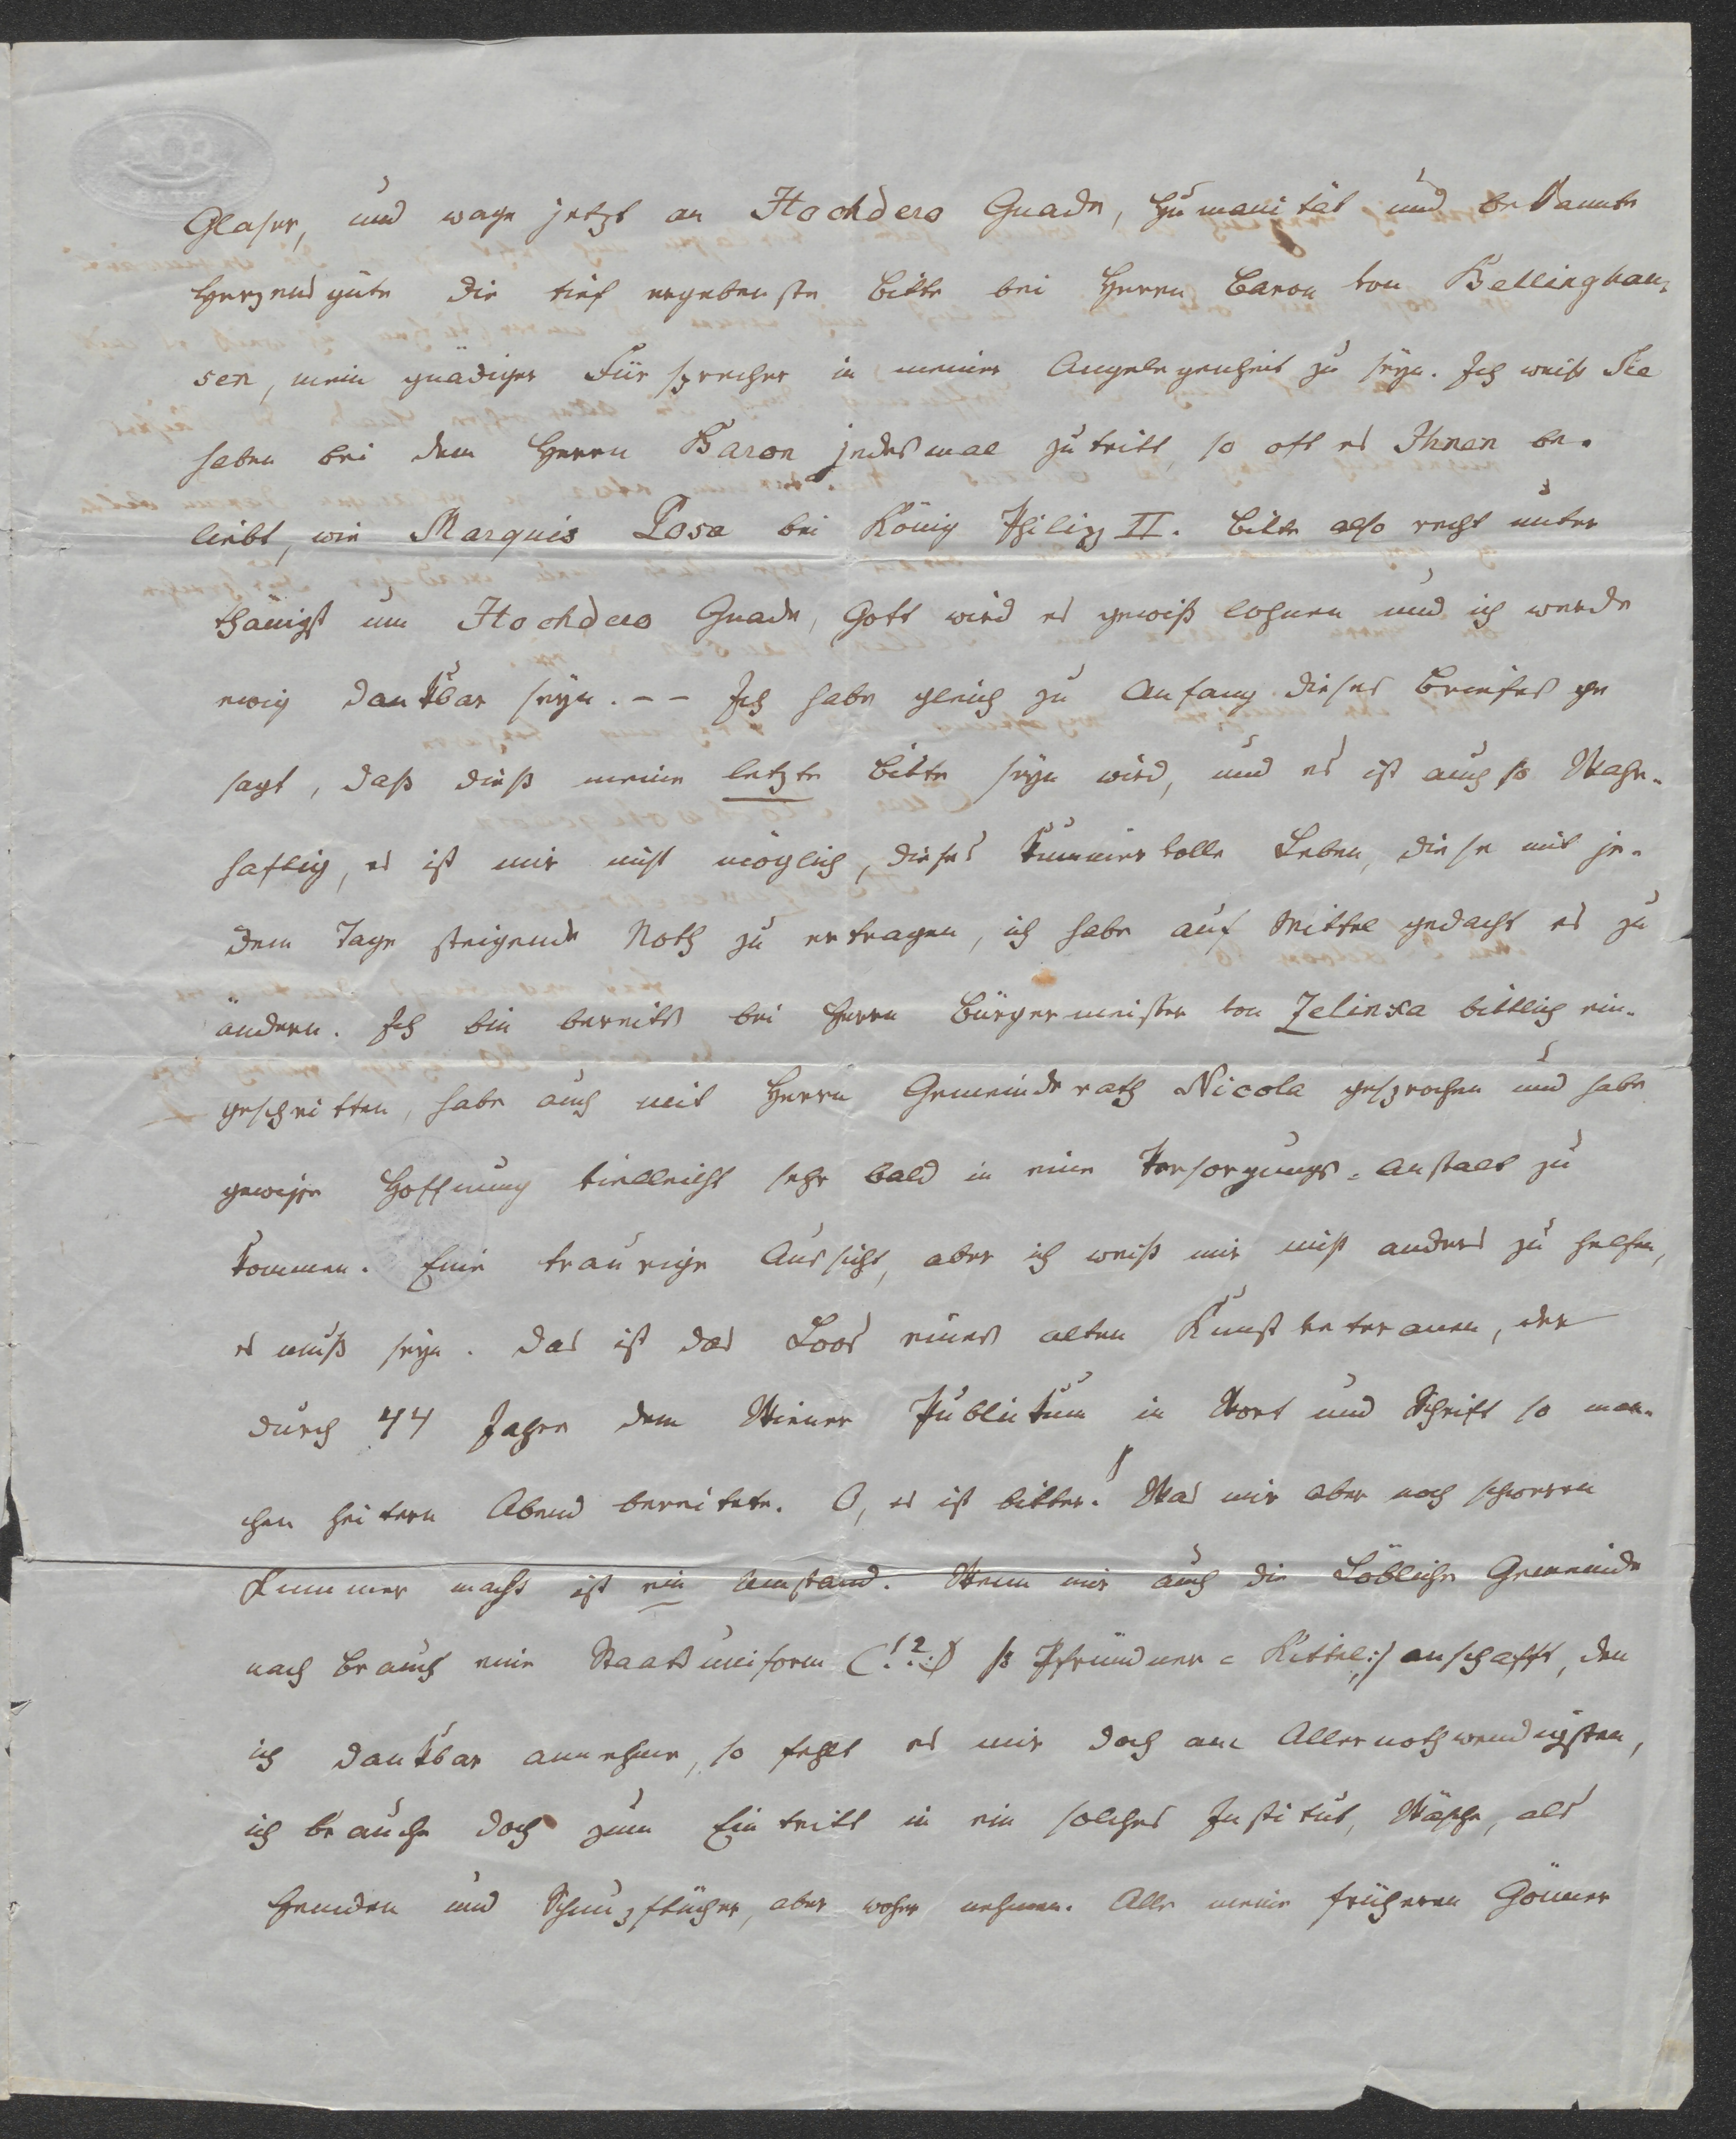 Glaser, und wage jetzt an Hochdero Gnade, Humanität und bekannte
Herzensgüte die tief ergebenste Bitte bei Herrn Baron von Bellinghau-
sen, mein gnädiger Fürsprecher in meiner Angelegenheit zu seyn. Ich weiß Sie
haben bei dem Herrn Baron jedesmal zutritt, so oft es Ihnen be-
liebt, wie Marquis Posa bei König Philipp II. Bitte also recht unter
thänigst um Hochdero Gnade, Gott wird es gewiß lohnen und ich werde
ewig dankbar seyn. -- Ich habe gleich zu Anfang dieses Briefes ge
sagt, daß dieß meine letzte Bitte seyn wird, und es ist auch so Wahr-
haftig, es ist mir nicht möglich, dieses kummervolle Leben, diese mit je-
dem Tage steigende Noth zu ertragen, ich habe auf Mittel gedacht es zu
ändern. Ich bin bereits bei Herrn Bürgermeister von Zelinka bittlich ein-
geschritten, habe auch mit Herrn Gemeinderath Nicola gesprochen und habe
gewisse Hoffnung vielleicht sehr bald in eine Versorgungs-Anstalt zu
kommen. Eine traurige Aussicht, aber ich weiß mir nicht anders zu helfen,
es muß seyn. Das ist das Loos eines alten Kunstveteranen, der
durch 44 Jahre dem Wiener Publikum in Wort und Schrift so man-
chen heitern Abend bereitete. O, es ist bitter! Was mir aber noch schweren
Kummer macht ist ein Umstand. Wenn mir auch die Löbliche Gemeinde
nach Brauch eine Staatsuniform (!?:) /: Pfründner-Kittel :/ anschafft, den
ich dankbar annehme, so fehlt es mir doch am Allernothwendigsten,
ich brauche doch zum Eintritt in ein solches Institut, Wäsche, als
Hemden und Schnupftücher, aber woher nehmen. Alle meine früheren Gönner